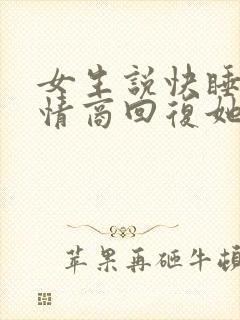 女生說快睡
情商回復她
苹果再砸牛頓